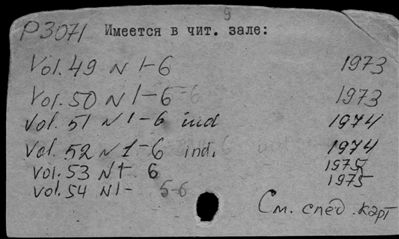 9
P3071 Имеется в чит. зале:
Vol. 49 N 1-6 1973
Vol. 50 N 1-6 1973
Vol. 51 N 1-6 ind 1974
Vol. 52 N 1-6 ind. 1974
Vol. 53 N 1- 6 1975
Vol. 54 N 1- 5-6 1975
См. спец. карт